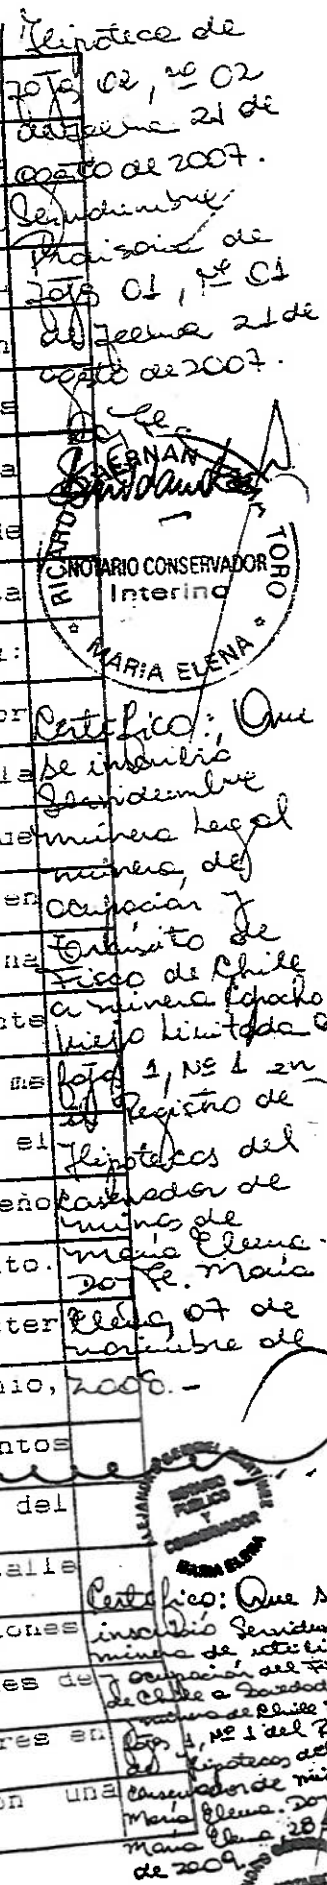 Hipoteca de
fojas 02, nº 02
de fecha 21 de
agosto de 2007.
Servidumbre
Provisoria de
fojas 01, nº 01
de fecha 21 de
agosto de 2007.
Doy Fe.
RICARDO HERNAN TORO
NOTARIO CONSERVADOR
Interino
* MARIA ELENA *
Certifico: Que
se inscribió
Servidumbre
minera Legal
minera, de
ocupación y
tránsito de
Fisco de Chile
a minera Copacho
Viejo Limitada a
fojas 1, Nº 1 en
el Registro de
Hipotecas del
Conservador de
minas de
María Elena.-
Doy Fe. María
Elena, 07 de
noviembre de
2008.-
NOTARIO
PUBLICO
Y
CONSERVADOR
MARIA ELENA
Certifico: Que s
inscribió Servidum
minera de
ocupación del Fi
de Chile a Sociedad
minera de Chile
fojas 1, Nº 1 del R
de Hipotecas del
Conservador de min
María Elena. Doy
María Elena, 28
de 2009.
a
a
e
a
:
or
la
ue
en
na
nte
me
el
eño
to.
ter
nio,
ntos
del
alle
iones
es de
res en
on una